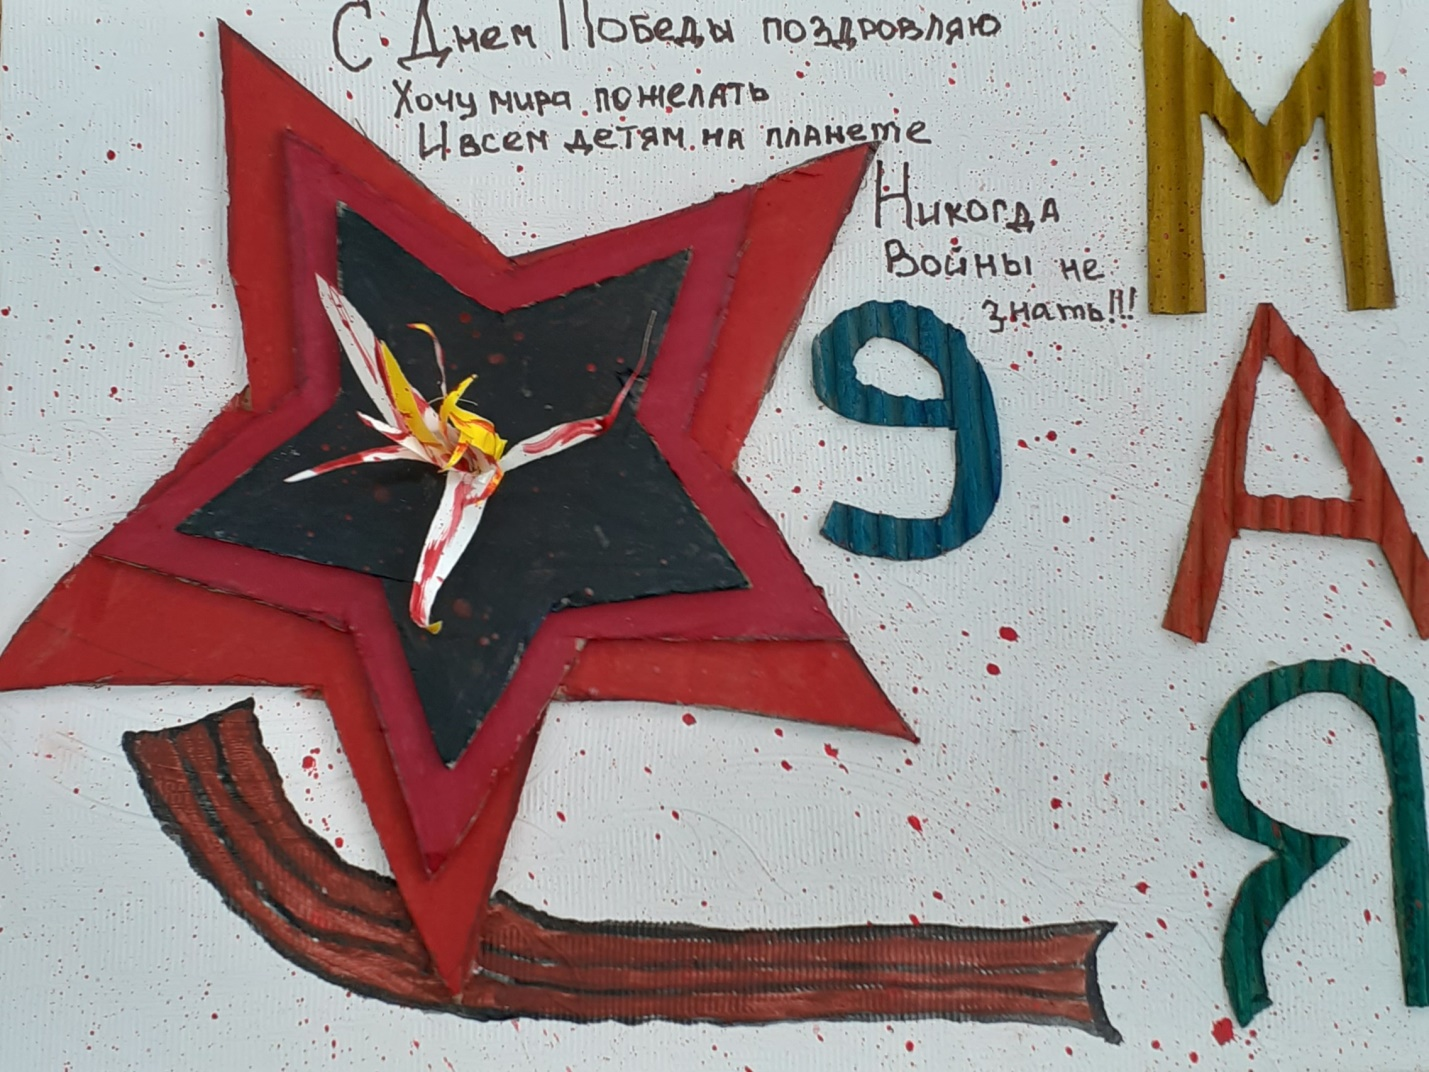 С Днем Победы поздровляю
Хочу мира пожелать
И всем детям на планете
Никогда
Войны не
знать!!!
9
МАЯ